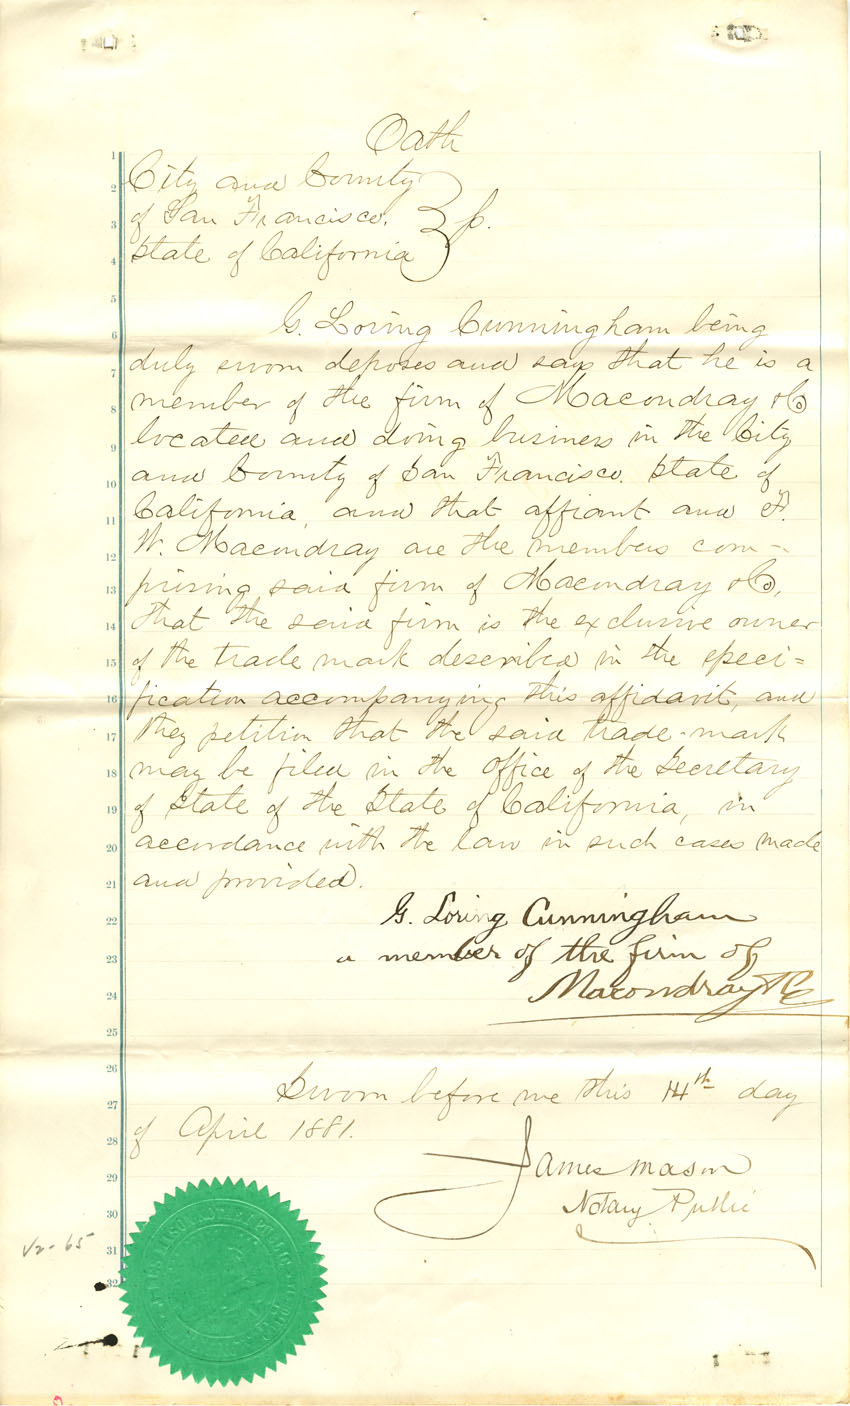 Oath
City and County
of San Francisco.
State of California
G. Loring Cunningham being
duly sworn deposes and says that he is a
member of the firm of Macondray & Co
located and doing business in the City
and County of San Francisco. State of
California, and that affiant and F.
W. Macondray are the members com-
prising said firm of Macondray & Co,
that the said firm is the exclusive owner
of the trade mark described in the speci=
fication accompanying this affidavit, and
they petition that the said trade-mark
may be filed in the office of the Secretary
of State of the State of California, in
accordance with the law in such cases made
and provided.
G. Loring Cunningham
a member of the firm of
Macondray & Co
Sworn before me this 14th day
of April 1881.
James Mason
Notary Public
1
2
3
4
5
6
7
8
9
10
11
12
13
14
15
16
17
18
19
20
21
22
23
24
25
26
27
28
29
30
31
32